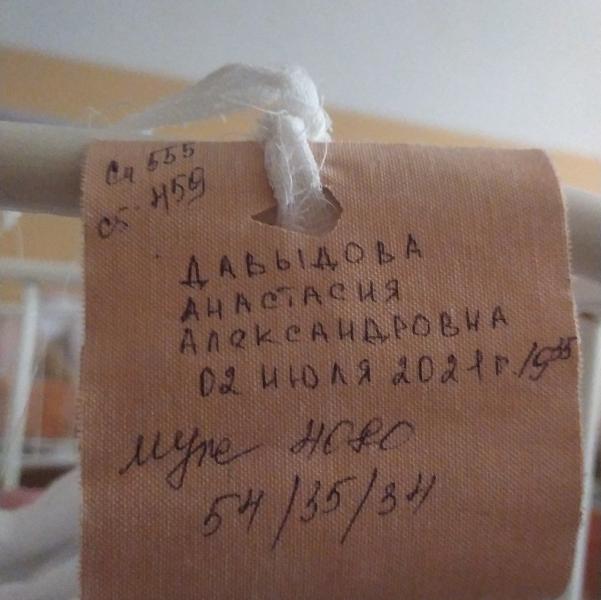 Сл 555
сб. 459
ДАВЫДОВА
АНАСТАСИЯ
АЛЕКСАНДРОВНА
02 ИЮЛЯ 2021 г. 19³⁵
муж 4080
54/35/34